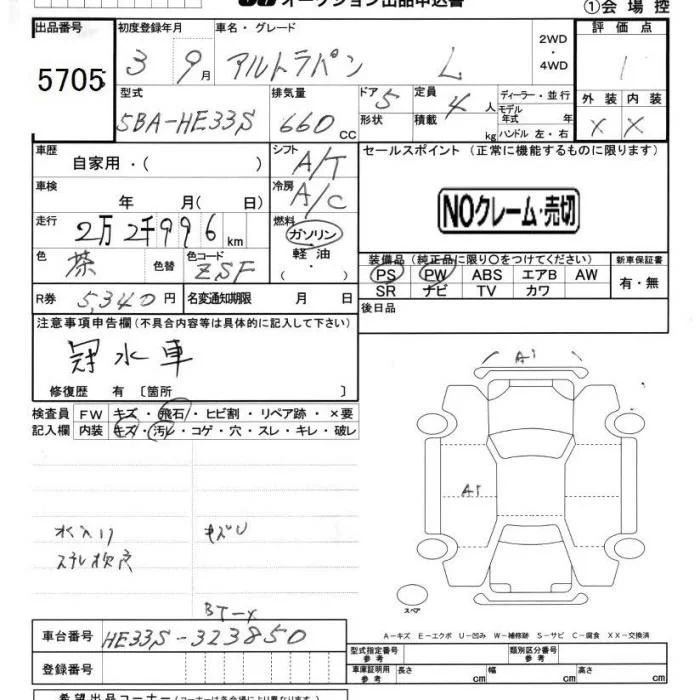 オークション出品申込書
①会場控
出品番号 初度登録年月 車名・グレード 2WD・4WD 評価点
5705 3 9月 アルトラパン L 1
型式 排気量 ドア 5 定員 4人 ディーラー・並行 外装 内装
5BA-HE33S 660cc 形状 積載 kg モデル年式 年 ハンドル 左・右 X X
車歴 自家用・( ) シフト A/T セールスポイント (正常に機能するものに限ります)
車検 年 月( 日) 冷房 A/C
NOクレーム・売切
走行 2万2千996km 燃料 ガソリン 軽油・( )
色 茶 色替 色コード ZSF
装備品 (純正品に限り○をつけてください) 新車保証書
PS PW ABS エアB AW 有・無
SR ナビ TV カワ
R券 5,340円 名変通知期限 月 日 後日品
注意事項申告欄(不具合内容等は具体的に記入して下さい)
冠水車
修復歴 有 〔箇所 〕
検査員 FW キズ・飛石・ヒビ割・リペア跡・×要
記入欄 内装 キズ・汚レ・コゲ・穴・スレ・キレ・破レ
A1
A1
水入り キズU
スペア
A-キズ E-エクボ U-凹み W-補修跡 S-サビ C-腐食 XX-交換済
車台番号 HE33S-323850
型式指定番号 参考 類別区分番号 参考
登録番号 車庫証明用 参考 長さ cm 幅 cm 高さ cm
希望出品コーナー